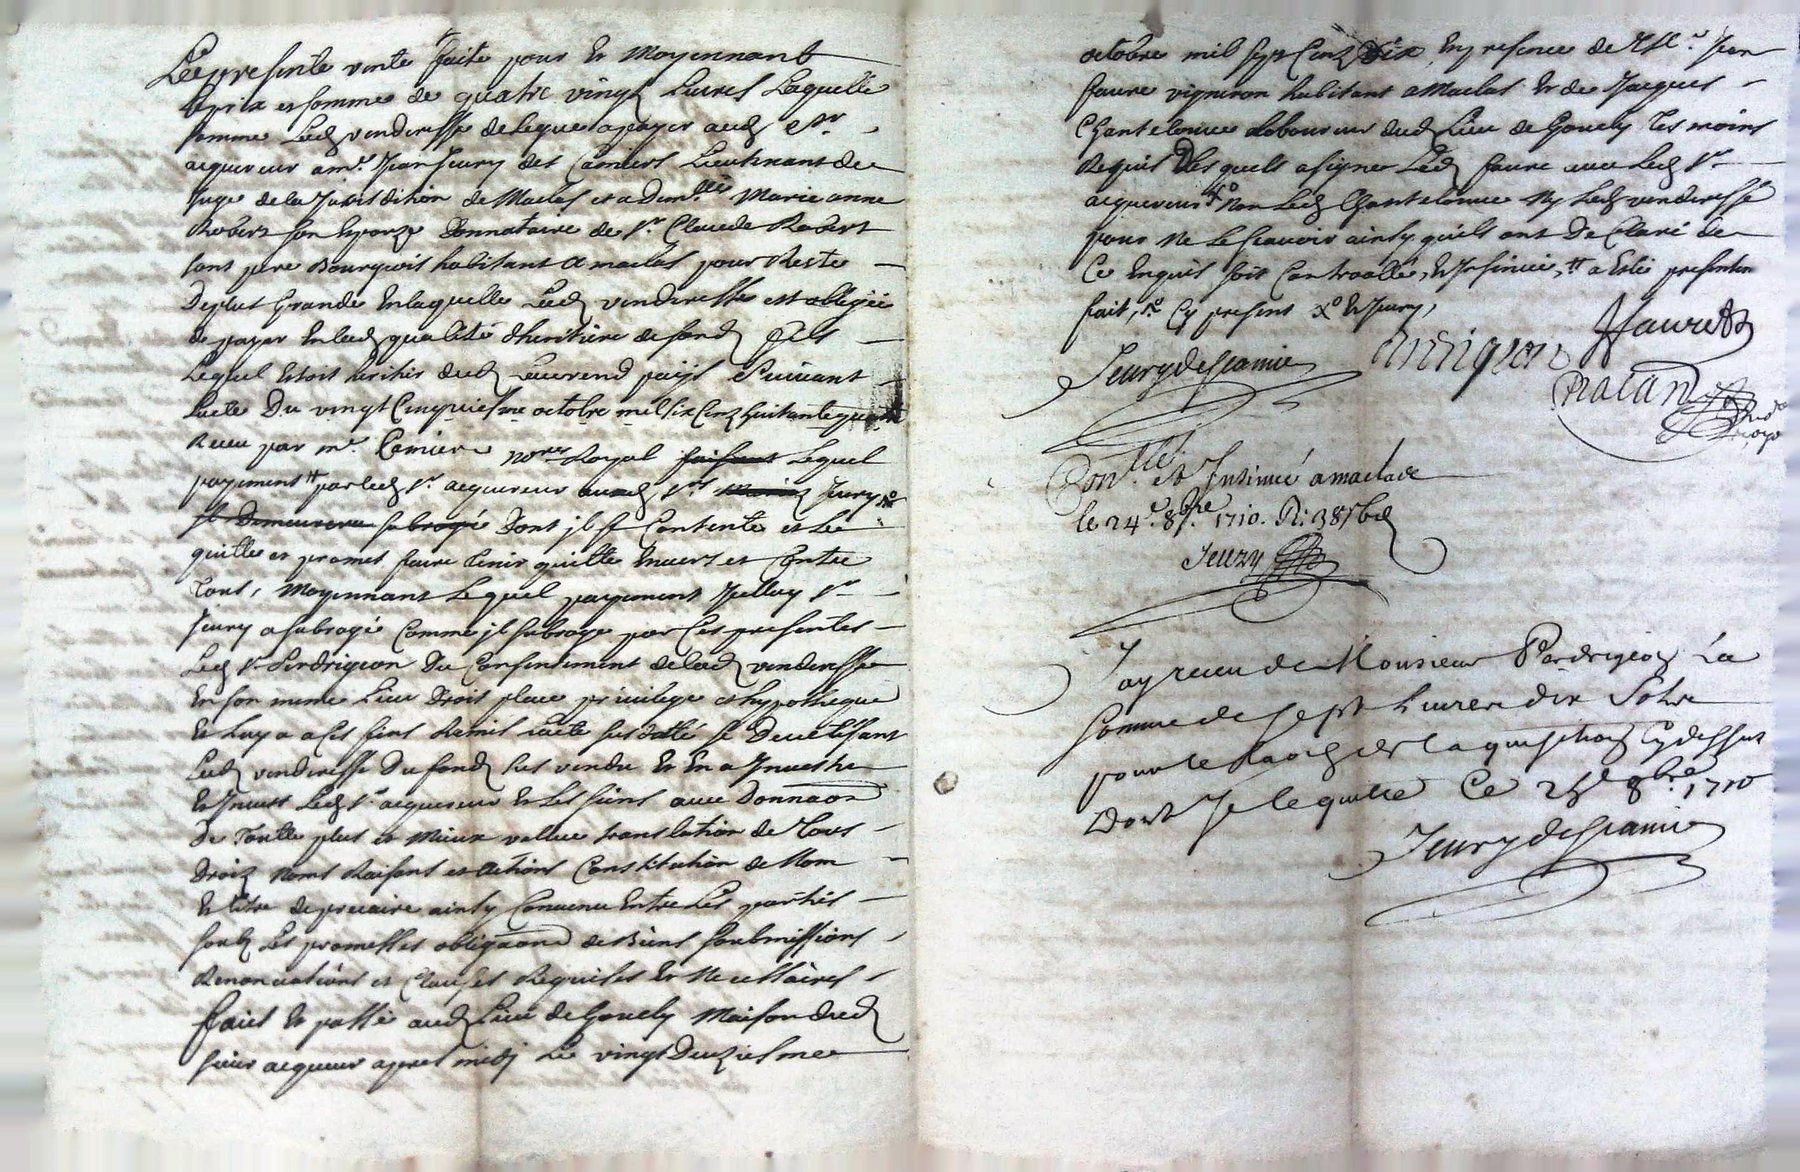 La presente vente faite pour et moyennant
le prix et somme de quatre vingt livres laquelle
somme lad venderesse delegue a payer aud sr
acquereur a mr Jean Jeury des Camiers lieutenant de
juge de la jurisdition de Maclas et a dem.lle Marie anne
Robert son espouze donnataire de sr Claude Robert
sont pere bourgeois habitant a maclas pour reste
de plus grande en laquelle lad venderesse est obligée
de payer en lad qualité dheritiere de fond
lequel estoit heritier dud Laurend pays suivant
lacte du vingt cinquiesme octobre mil six cens huitante quatre
receu par mr Camier nore Royal faisant lequel
payement par led sr acquereur aud sr Jeury
il demeurera subrogé dont il se contente et le
quitte et promet faire tenir quitte envers et contre
tous, moyennant lequel payement icelluy sr
Jeury a subrogé comme il subroge par ces presentes
led sr Perdrigeon du consentement de lad venderesse
en son mesme lieu droit place privilege et hypotheque
et luy a a ces fins remis lacte sus datté se devetissant
lad venderesse du fond sus vendu et en a investu
et invest led sr acquereur et les siens avec donnaon
de toutte plus et mieux vallue translation de tous
droiz noms raisons et actions constitution de nom
et titre de precaire ainsy convenu entre les parties
soubz les promesses obligaons de biens soubmissions
renonciations et clauses requises et necessaires
faict et passé aud lieu de Gouely maison dud
sieur acquereur apres midy le vingt deuziesme
octobre mil sept cens dix, en presence de Jean
faure vigneron habitant a Maclas et de Jacques
Chantelouve laboureur dud lieu de Gouely tesmoins
requis desquels a signer led faure avec led sr
acquereur non led Chantelouve ny lad venderesse
pour ne le scavoir ainsy quils ont declaré de
ce enquis soit controollé, et insinué, a esté presentem
fait, cy present et Jeury,
Jeurydescamie Perdrigeon JFaure
Chalan
Conllé et Insinué a maclas
le 24e 8bre 1710. R:
Jeury
Jay receu de Monsieur Perdrigeon La
somme de sept livres dix Sols
pour le de laquisition cy dessus
dont Je le quitte Ce 25e 8bre 1710
Jeurydescamie